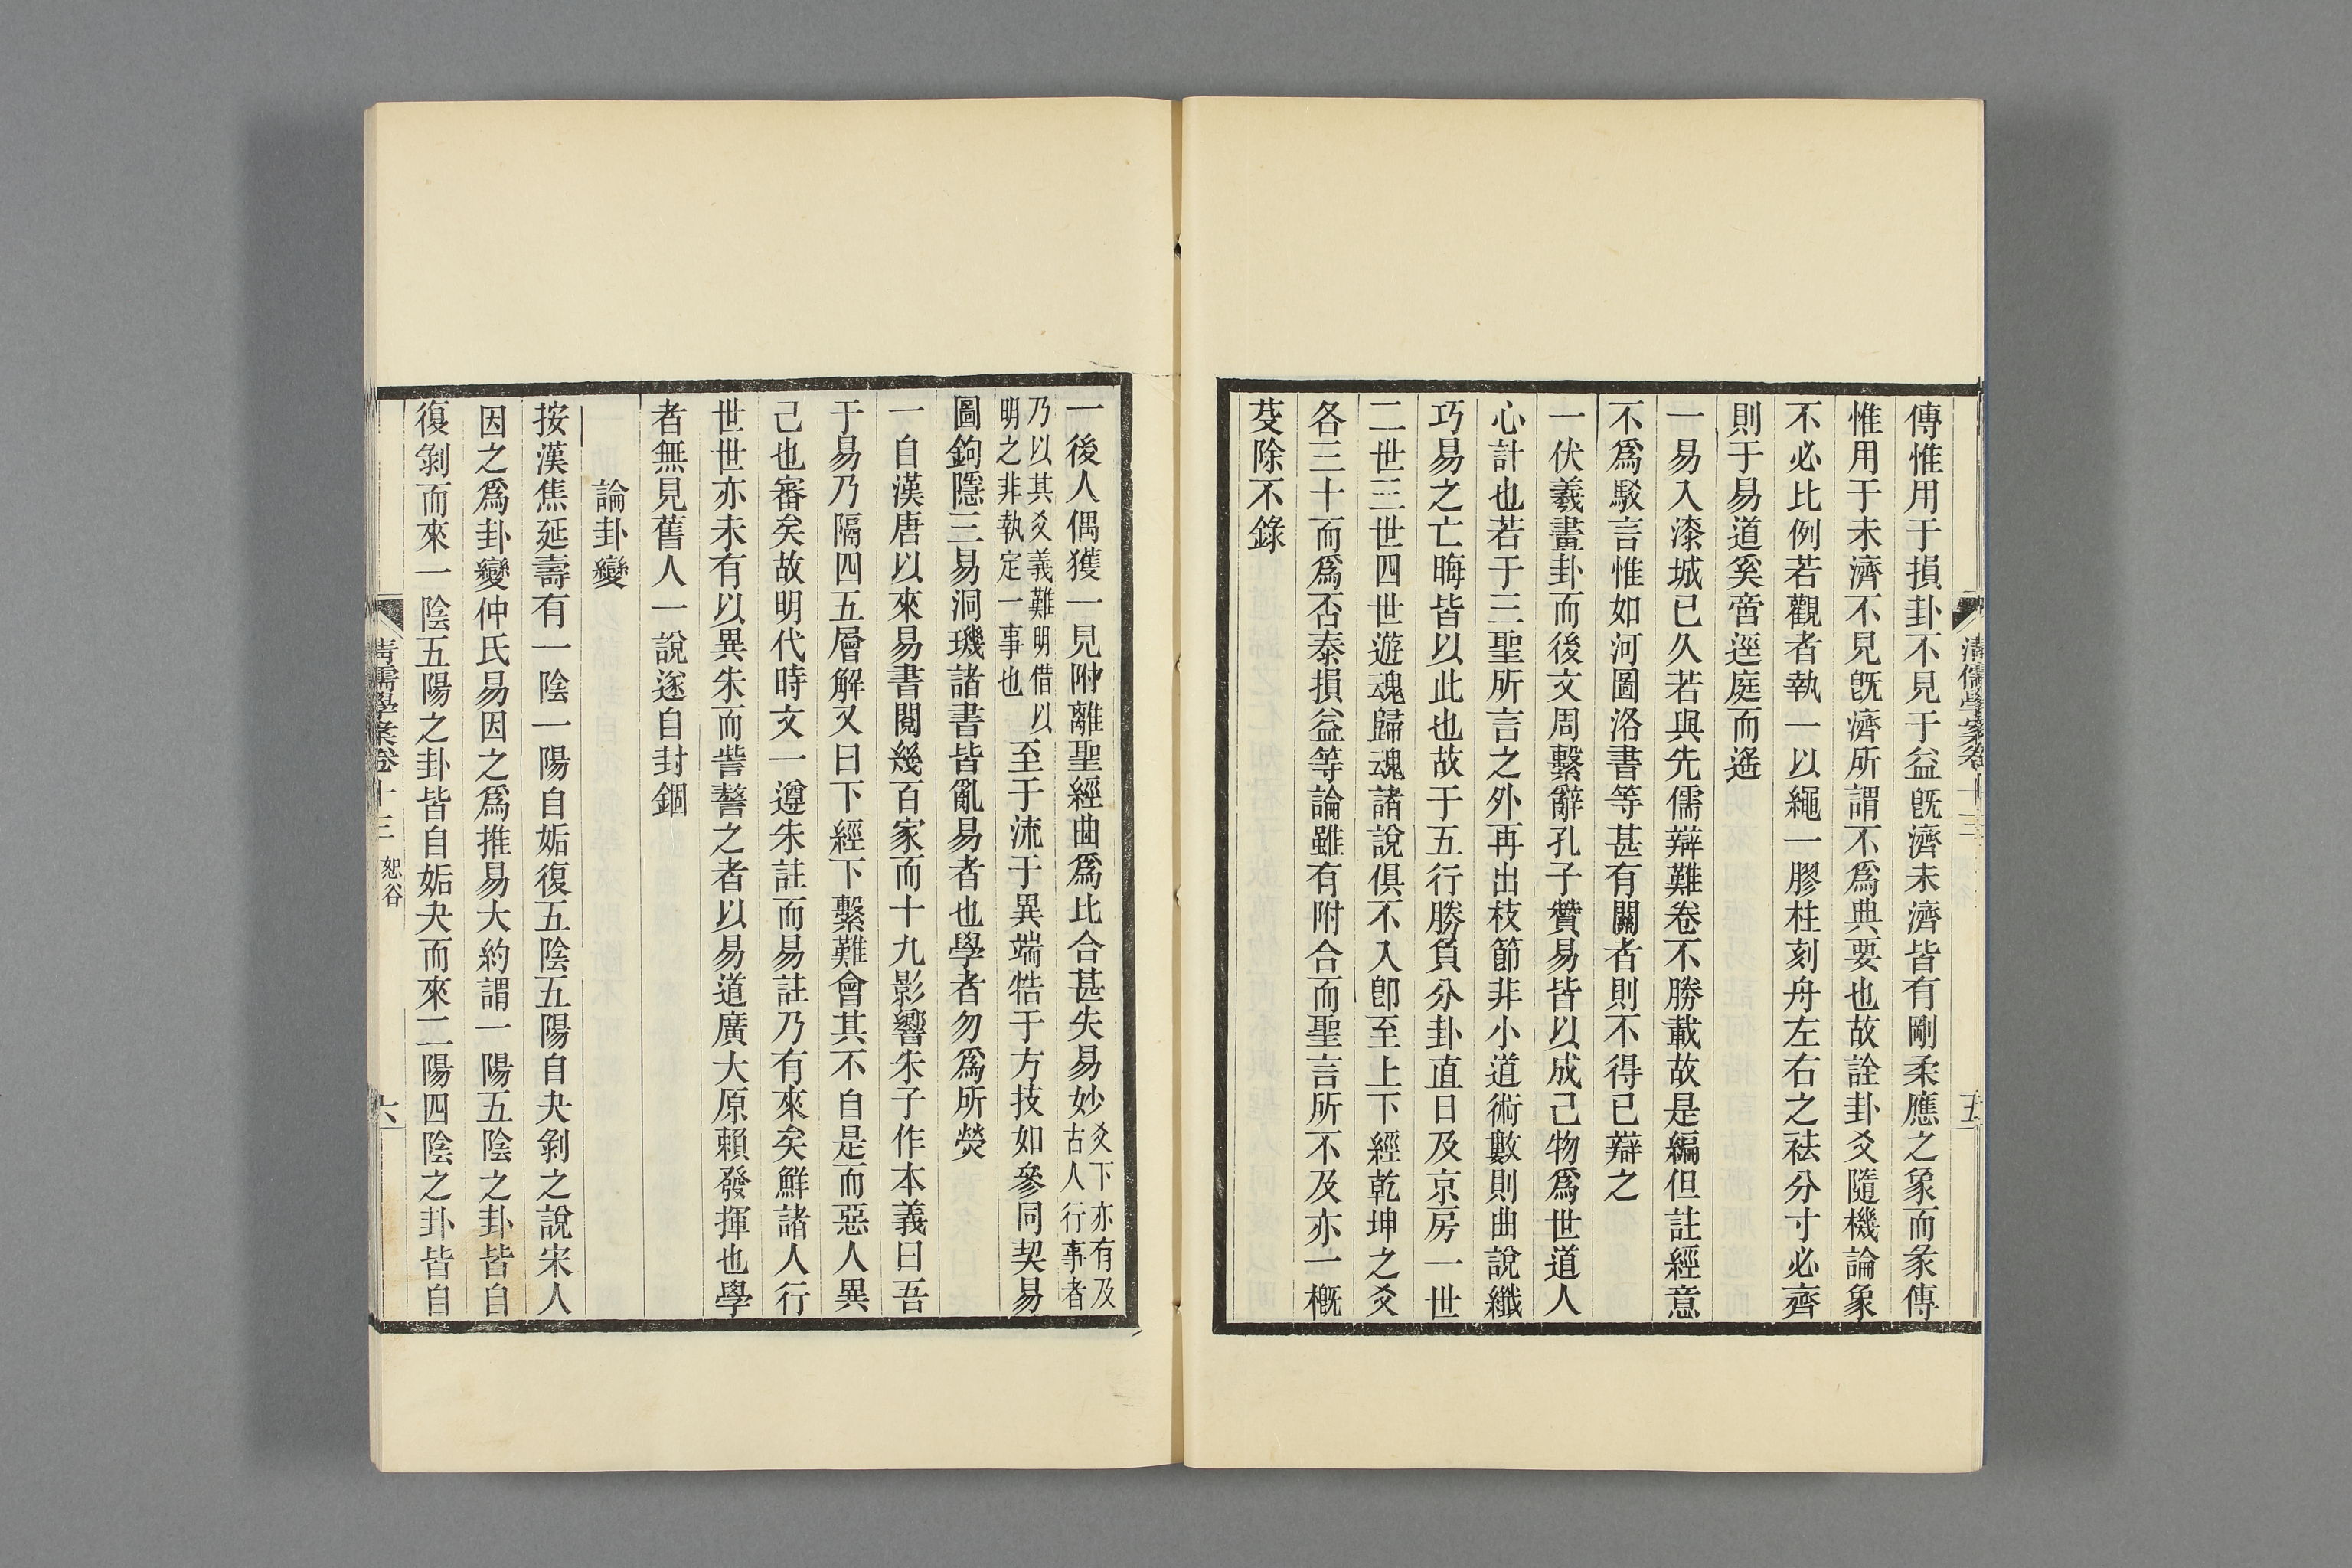 清儒學案卷十三
五
傳惟用于損卦不見于益旣濟未濟皆有剛柔應之象而彖傳
惟用于未濟不見旣濟所謂不爲典要也故詮卦爻隨機論象
不必比例若觀者執一以繩一膠柱刻舟左右之袪分寸必齊
則于易道奚啻逕庭而遙
一易入漆城已久若與先儒辯難卷不勝載故是編但註經意
不爲駁言惟如河圖洛書等甚有關者則不得已辯之
一伏羲畫卦而後文周繫辭孔子贊易皆以成己物爲世道人
心計也若于三聖所言之外再出枝節非小道術數則曲說纖
巧易之亡晦皆以此也故于五行勝負分卦直日及京房一世
二世三世四世遊魂歸魂諸說俱不入卽至上下經乾坤之爻
各三十而爲否泰損益等論雖有附合而聖言所不及亦一槪
芟除不錄
一後人偶獲一見附離聖經曲爲比合甚失易妙爻下亦有及古人行事者
乃以其爻義難明借以明之非執定一事也至于流于異端牿于方技如參同契易
圖鉤隱三易洞璣諸書皆亂易者也學者勿爲所熒
一自漢唐以來易書閱幾百家而十九影響朱子作本義曰吾
于易乃隔四五層解又曰下經下繫難會其不自是而惡人異
己也審矣故明代時文一遵朱註而易註乃有來矣鮮諸人行
世世亦未有以異朱而訾謷之者以易道廣大原賴發揮也學
者無見舊人一說遂自封錮
論卦變
按漢焦延壽有一陰一陽自姤復五陰五陽自夬剝之說宋人
因之爲卦變仲氏易因之爲推易大約謂一陽五陰之卦皆自
復剝而來一陰五陽之卦皆自姤夬而來二陽四陰之卦皆自
清儒學案卷十三 恕谷
六